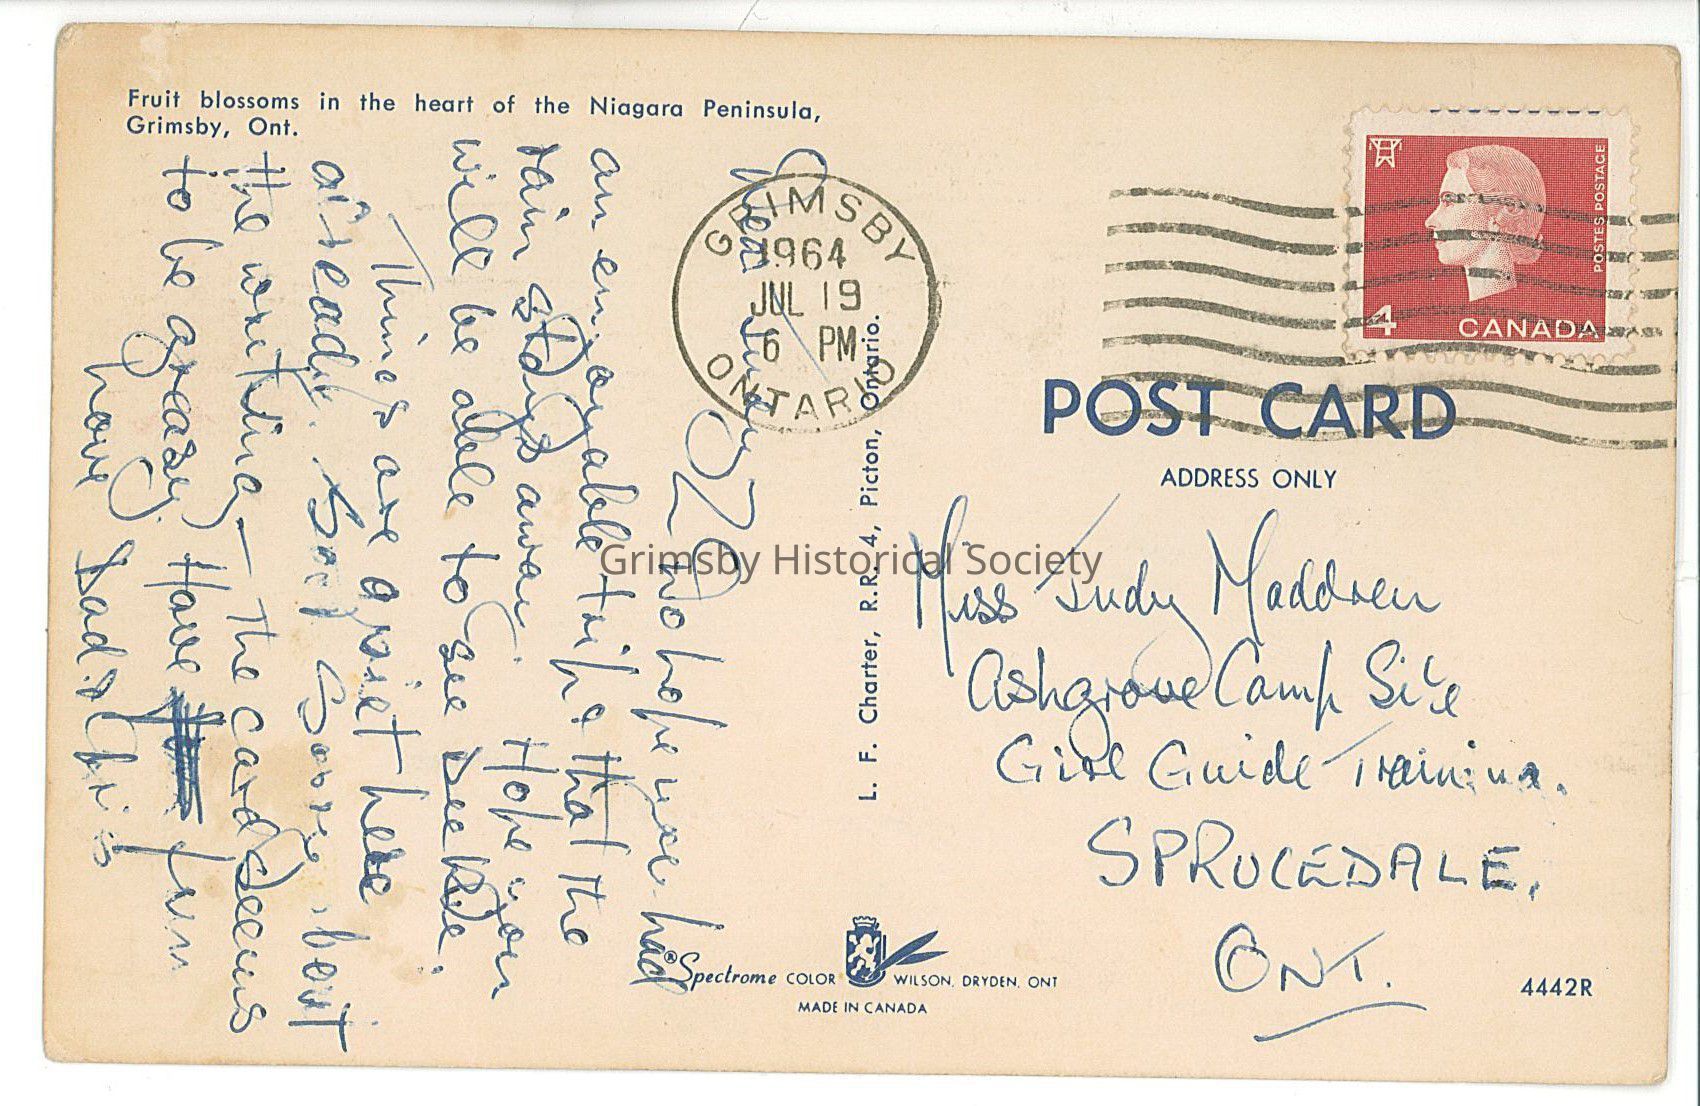 Fruit blossoms in the heart of the Niagara Peninsula,
Grimsby, Ont.
GRIMSBY
1964
JUL 19
6 PM
ONTARIO
POSTES POSTAGE
4 CANADA
POST CARD
ADDRESS ONLY
Dear Judy
We hope you had
an enjoyable trip & that the
rain stays away. Hope you
will be able to see
Things are quiet here
already. Sorry about
the writing - the card seems
to be greasy. Have fun
Love Dad &
L. F. Charter, R.R. 4, Picton, Ontario.
Grimsby Historical Society
Miss Judy Maddren
Ashgrove Camp Site
Girl Guide Training.
SPRUCEDALE.
ONT.
®Spectrome COLOR WILSON, DRYDEN, ONT
MADE IN CANADA
4442R